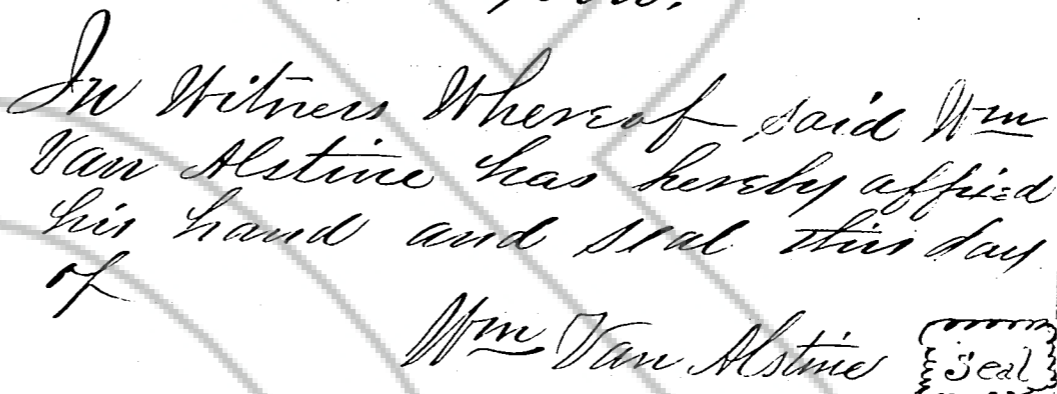 In Witness Whereof said Wm
Van Alstine has hereby affixed
his hand and seal this day
of
Wm Van Alstine Seal